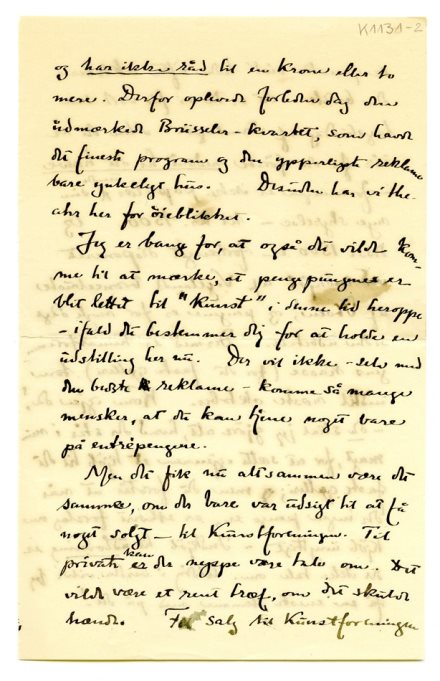 K1131-2
og har ikke råd til en krone eller to
mere. Derfor oplevede forleden dag den
üdmærkede Brüsseler-kvartet, som havde
det fineste program og den ypperligste reklame
bare ynkeligt hüs. Desüden har vi the-
ater her for öieblikket.
Jeg er bange for, at også dü vilde kom-
me til at mærke, at pengepüngene er
blit lettet til "Kunst", i denne tid heroppe
- ifald dü bestemmer dig for at holde en
üdstilling her nü. Der vil ikke - selv med
den bedste reklame - komme så mange
mensker, at dü kan tjene noget bare
på entrépengene.
Men det fik nü altsammen være det
samme, om der bare var üdsigt til at få
noget solgt - til Künstforeningen. Til
private kan der neppe være tale om. Det
vilde være et rent træf, om det skülde
hænde. For salg til Künstforeningen